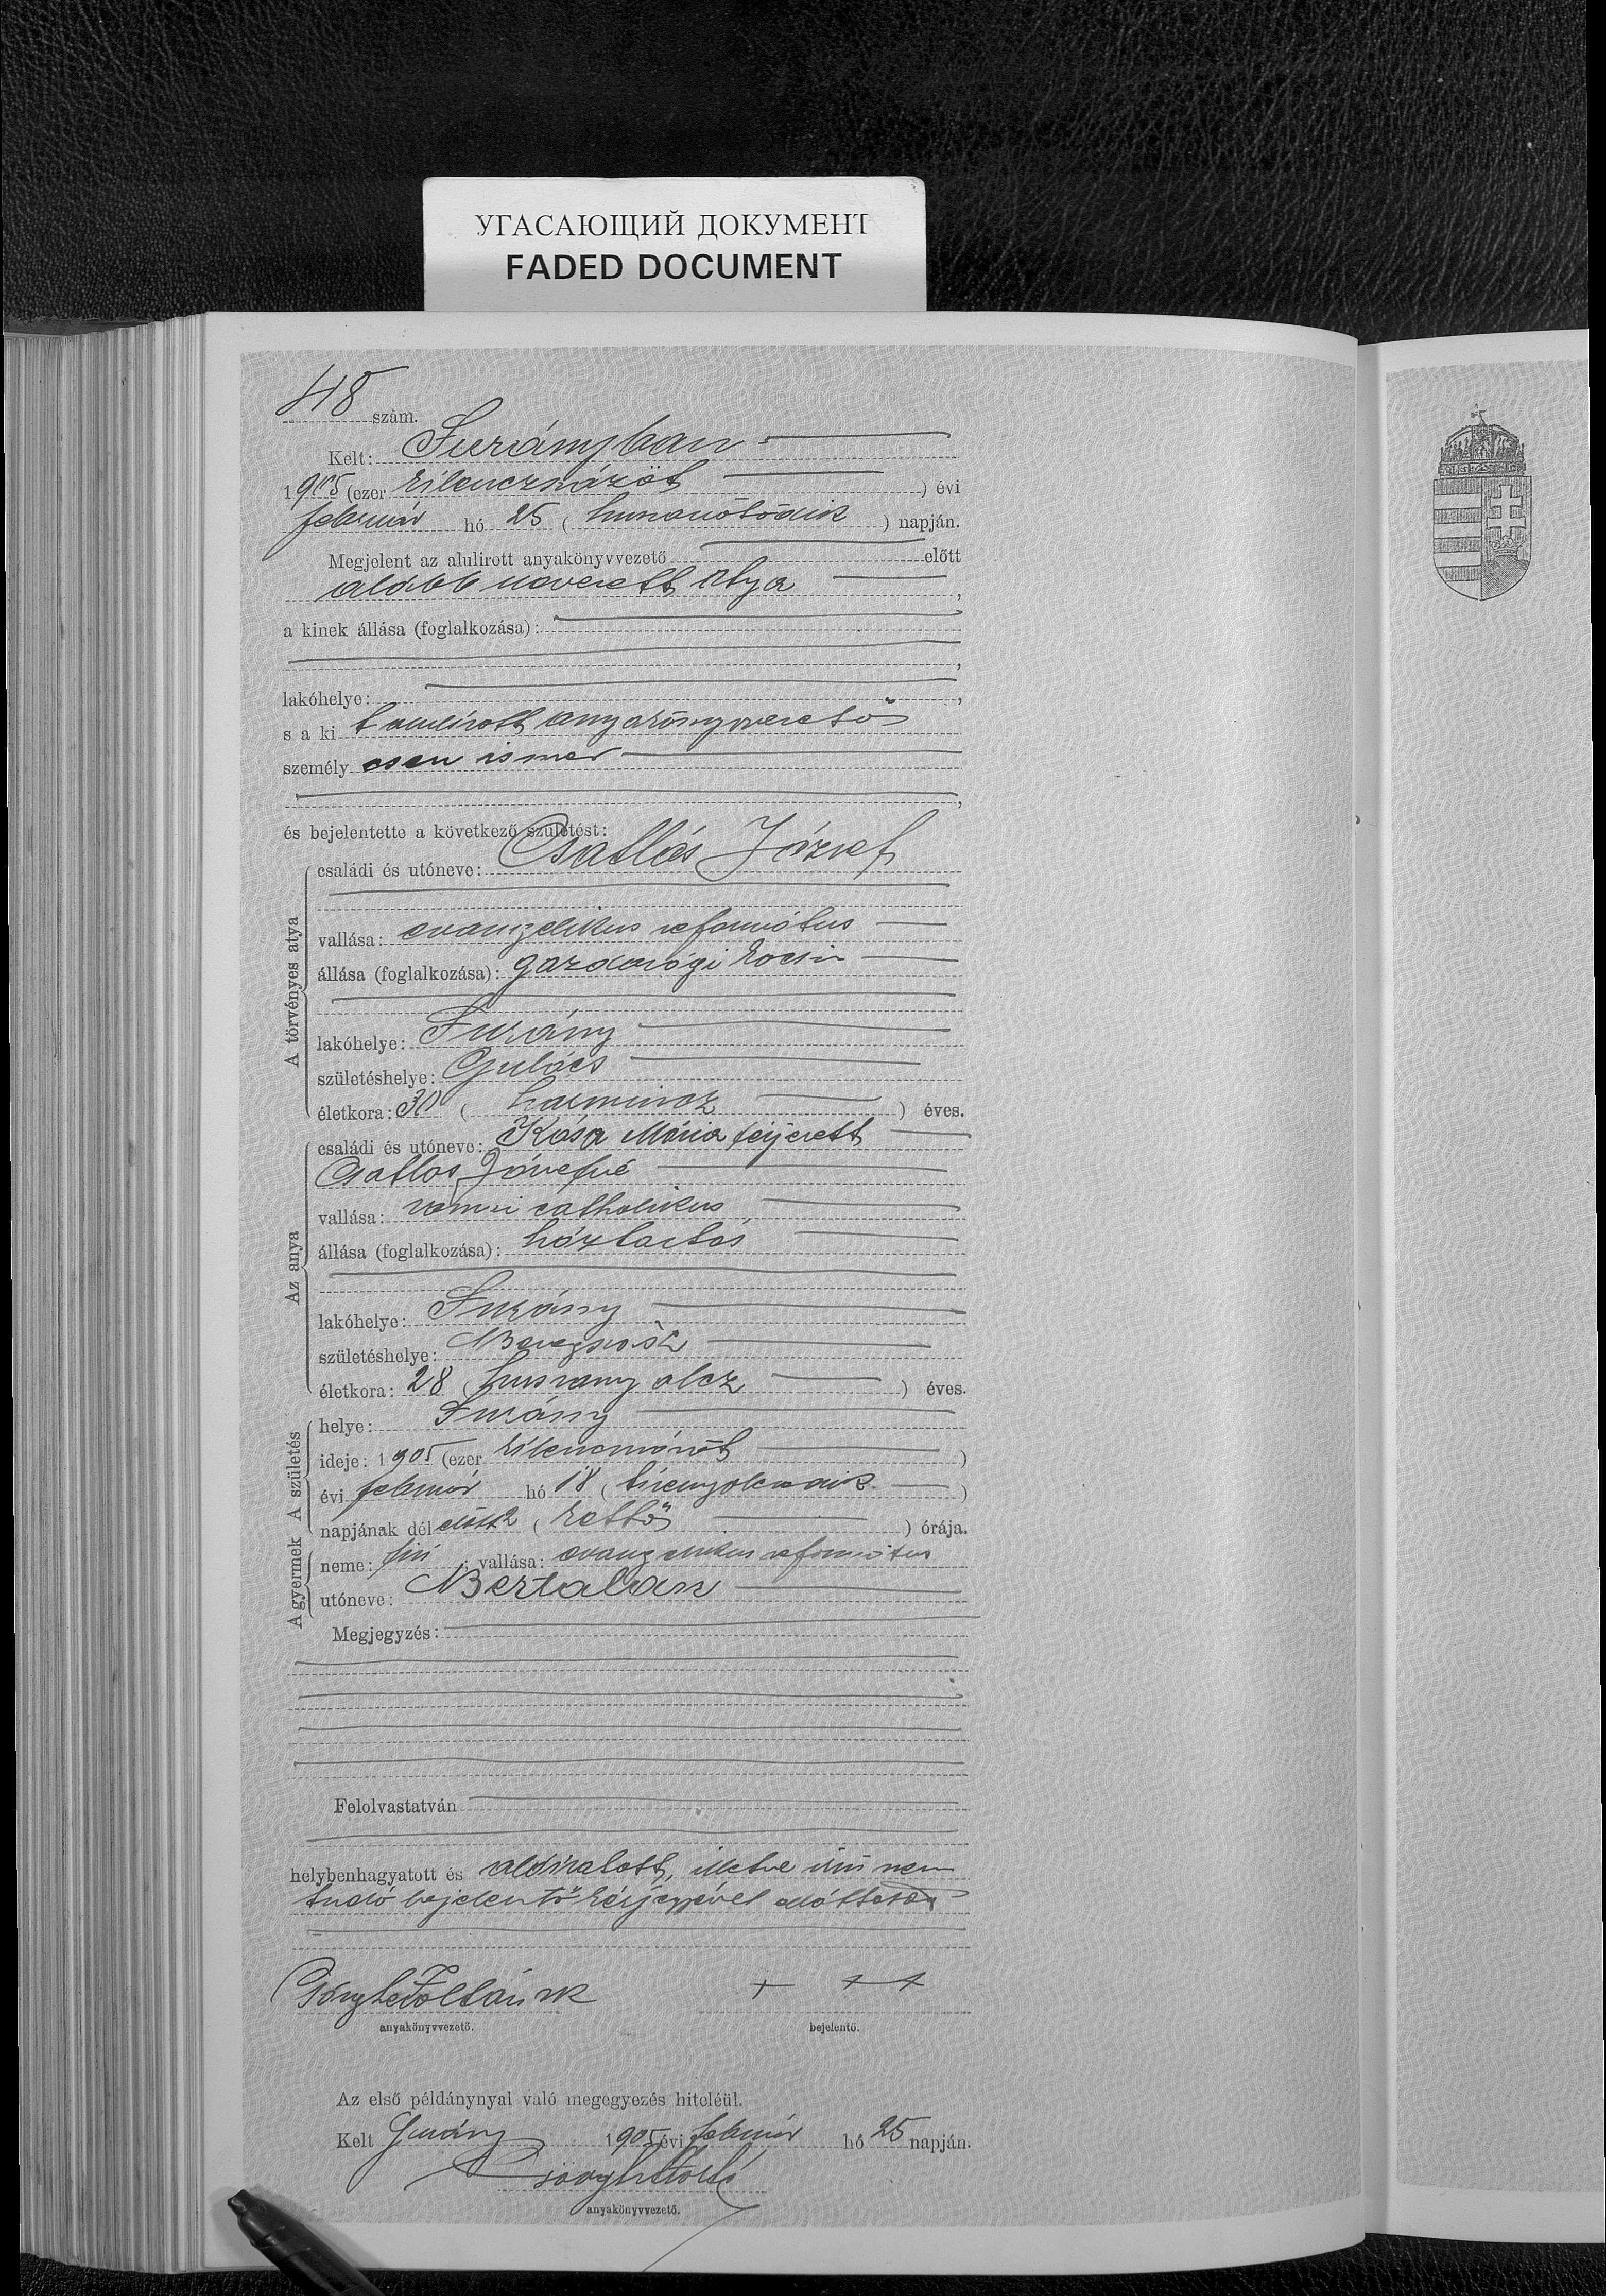 УГАСАЮЩИЙ ДОКУМЕНТ
FADED DOCUMENT
48 szám.
Kelt: Surányban
1905 (ezer kilenczszázöt ) évi
február hó 25 ( huszonötödik ) napján.
Megjelent az alulirott anyakönyvvezető előtt
alább nevezett atya ,
a kinek állása (foglalkozása):
,
lakóhelye: ,
s a ki t alulírott anyakönyvvezető
személy esen ismer
,
és bejelentette a következő születést:
A törvényes atya
családi és utóneve: Csatlós József
vallása: evangelikus református
állása (foglalkozása): gazdasági kocsis
lakóhelye: Surány
születéshelye: Gulács
életkora: 30 ( harmincz ) éves.
Az anya
családi és utóneve: Kósa Mária férjezett
Csatlos Józsefné
vallása: római catholikus
állása (foglalkozása): háztartás
lakóhelye: Surány
születéshelye:
életkora: 28 ( huszonnyolcz ) éves.
A születés
helye: Surány
ideje: 1905 (ezer kilenczszázöt )
évi február hó 18 ( tizennyolczadik )
napjának dél előtt 2 ( kettő ) órája.
A gyermek
neme: fiú ; vallása: evangelikus református
utóneve: Bertalan
Megjegyzés:
Felolvastatván
helybenhagyatott és aláiratott, illetve irni nem
tudó bejelentő kézjegyével elláttatott
Zoltán
+ + +
anyakönyvvezető.
bejelentő.
Az első példánynyal való megegyezés hiteléül.
Kelt Surány 1905 évi február hó 25 napján.
anyakönyvvezető.